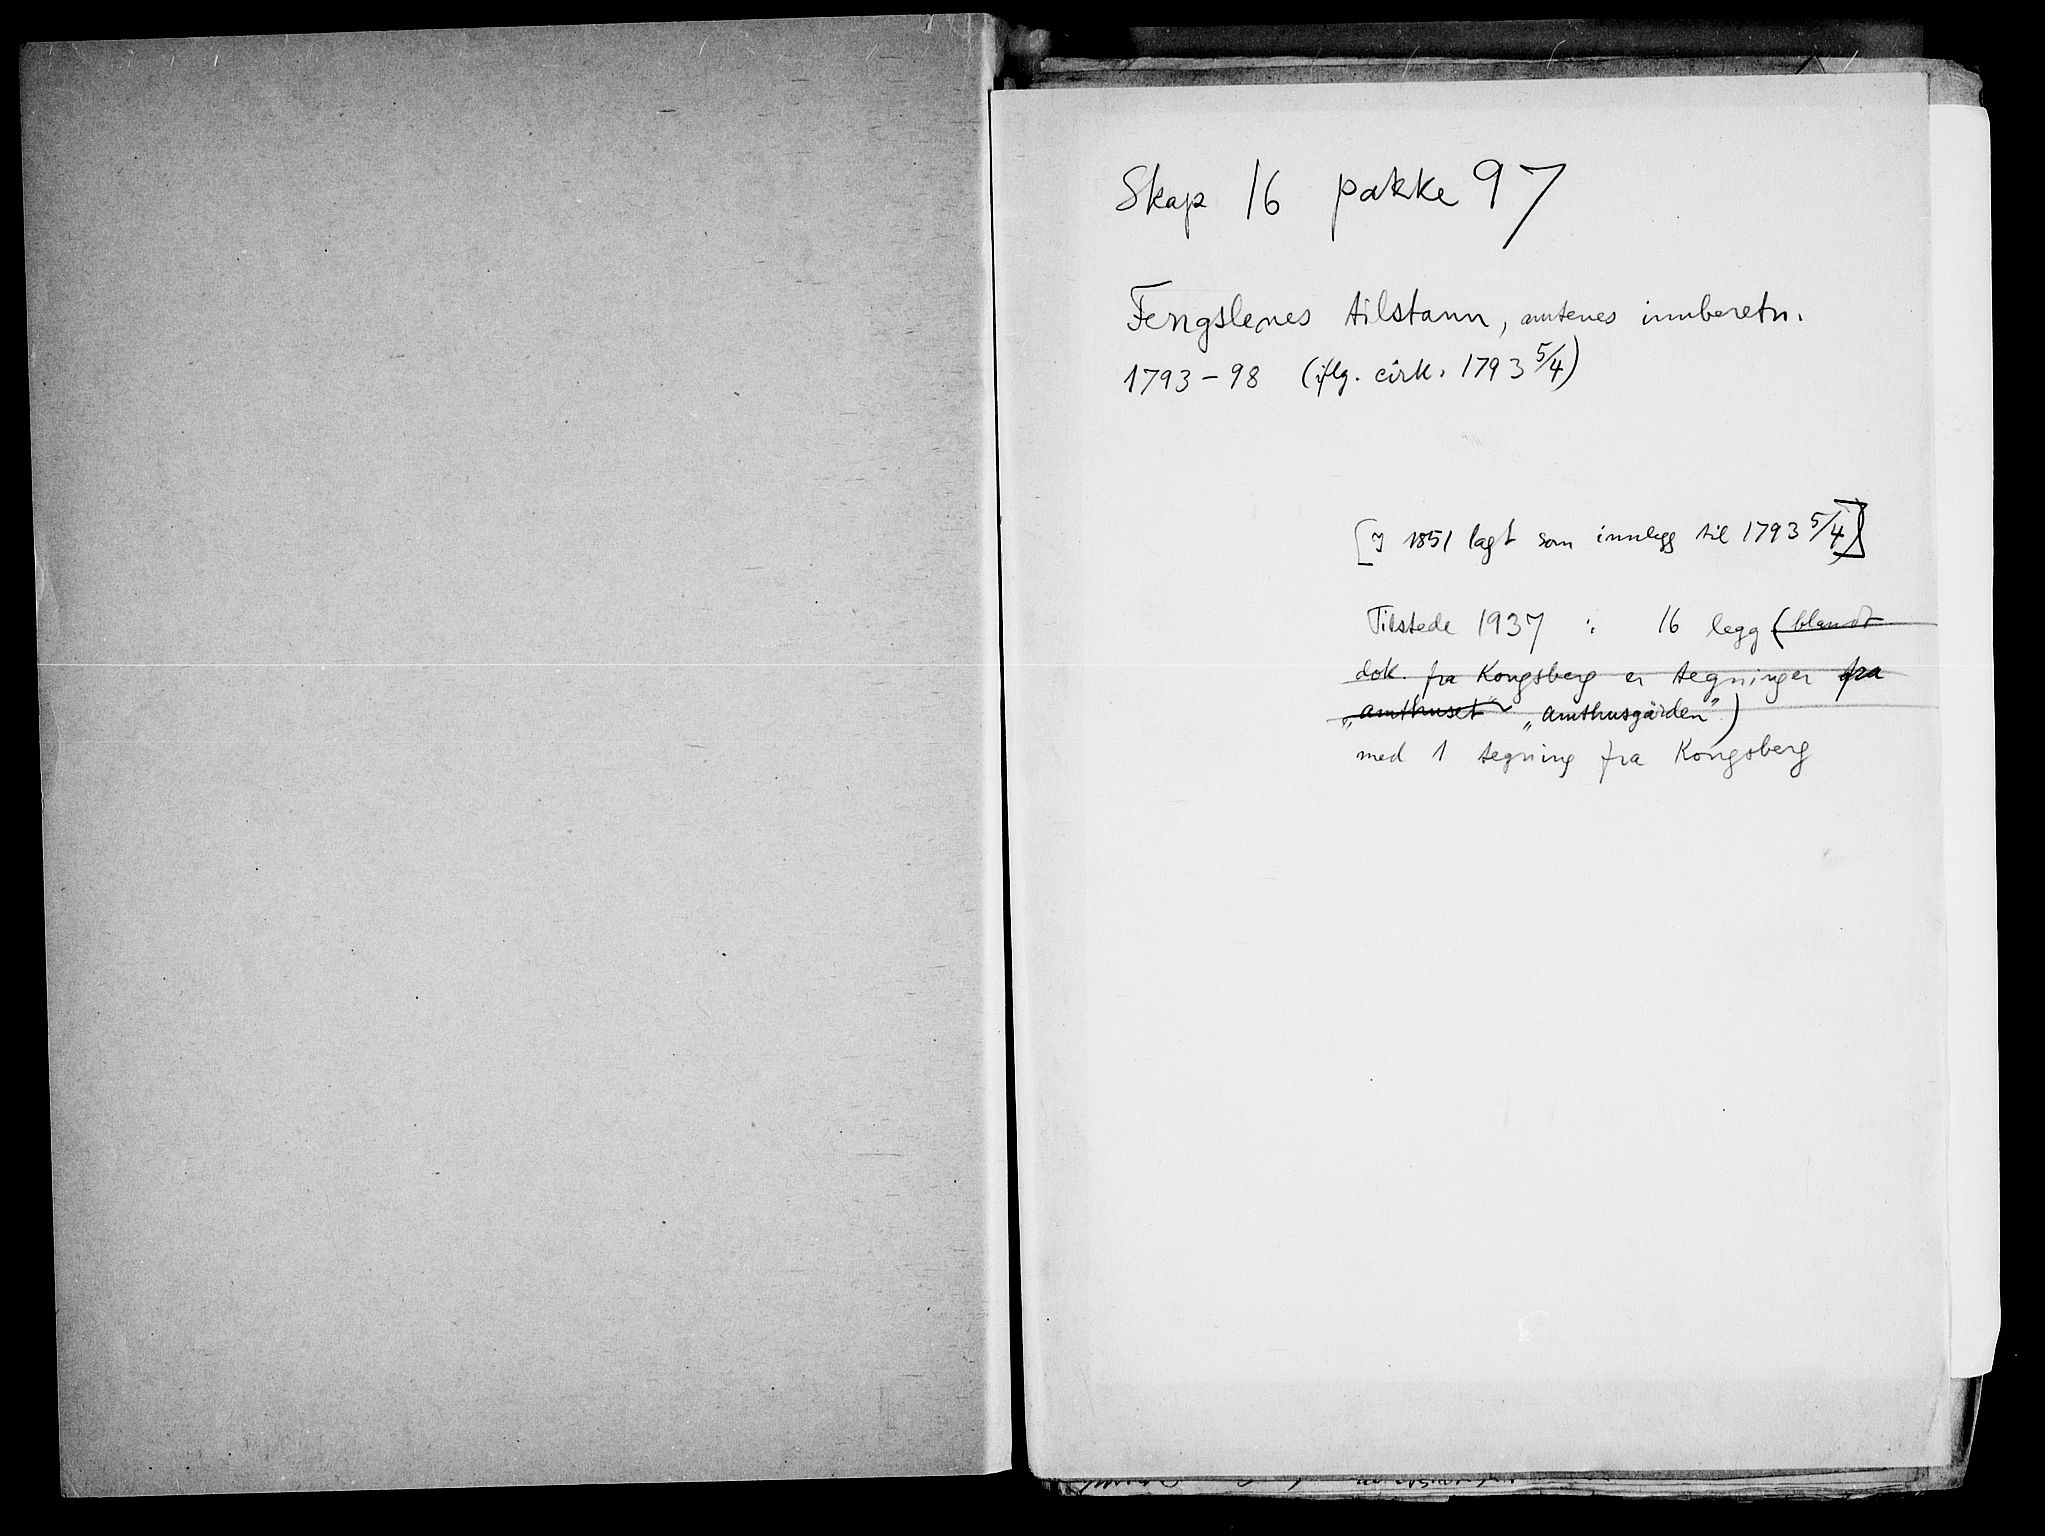 Skap 16 pakke 97
Fengslenes tilstann, amtenes innberetn.
1793-98 (iflg. cirk. 1793 5/4)
[I 1851 lagt som innlegg til 1793 5/4]
Tilstede 1937 : 16 legg (blandt
dok. fra Kongsberg er tegninger fra
"amthuset" "Amthusgården")
med 1 tegning fra Kongsberg